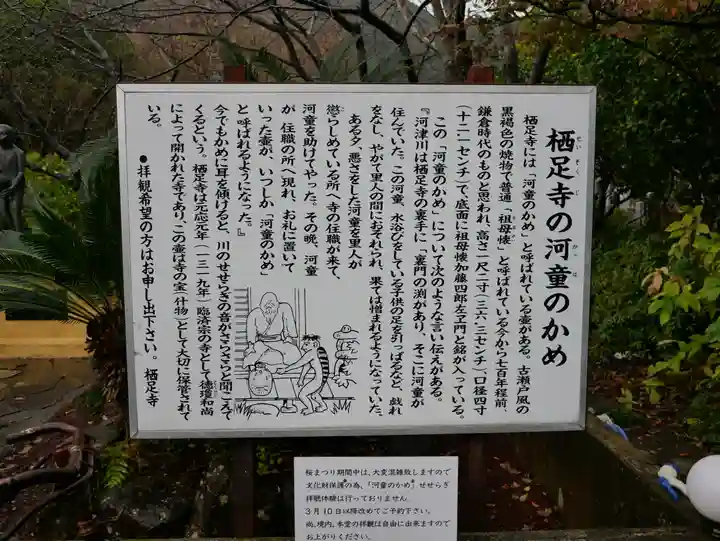 栖足寺の河童のかめ
せいそくじ
かっぱ
栖足寺には「河童のかめ」と呼ばれている壺がある。古瀬戸風の
黒褐色の焼物で普通「祖母懐」と呼ばれている今から七百年程前、
鎌倉時代のものと思われ、高さ一尺二寸(三六・三センチ)、口径四寸
(十二・一センチ)で、底面に祖母懐加藤四郎左ヱ門と銘が入っている。
この「河童のかめ」について次のような言い伝えがある。
『河津川は栖足寺の裏手に、裏門の渕があり、そこに河童が
住んでいた。この河童、水浴びをしている子供の足を引っぱるなど、戯れ
をなし、やがて里人の間におそれられ、果ては憎まれるようになっていた。
ある夕、悪さをした河童を里人が
懲らしめている所へ寺の住職が来て、
河童を助けてやった。その晩、河童
が住職の所へ現れ、お礼に置いて
いった壺が、いつしか「河童のかめ」
と呼ばれるようになった。』
今でもかめに耳を傾けると、川のせせらぎの音がさらさらと聞こえて
くるという。栖足寺は元応元年(一三一九年)臨済宗の寺として徳瓊和尚
によって開かれた寺であり、この壺は寺の宝(什物)として大切に保管されて
いる。
●拝観希望の方はお申し出下さい。栖足寺
桜まつり期間中は、大変混雑致しますので
文化財保護の為、「河童のかめ」せせらぎ
拝聴体験は行っておりません
3月10日以降改めてご予約下さい。
尚、境内、本堂の拝観は自由に出来ますので
お上がりください。